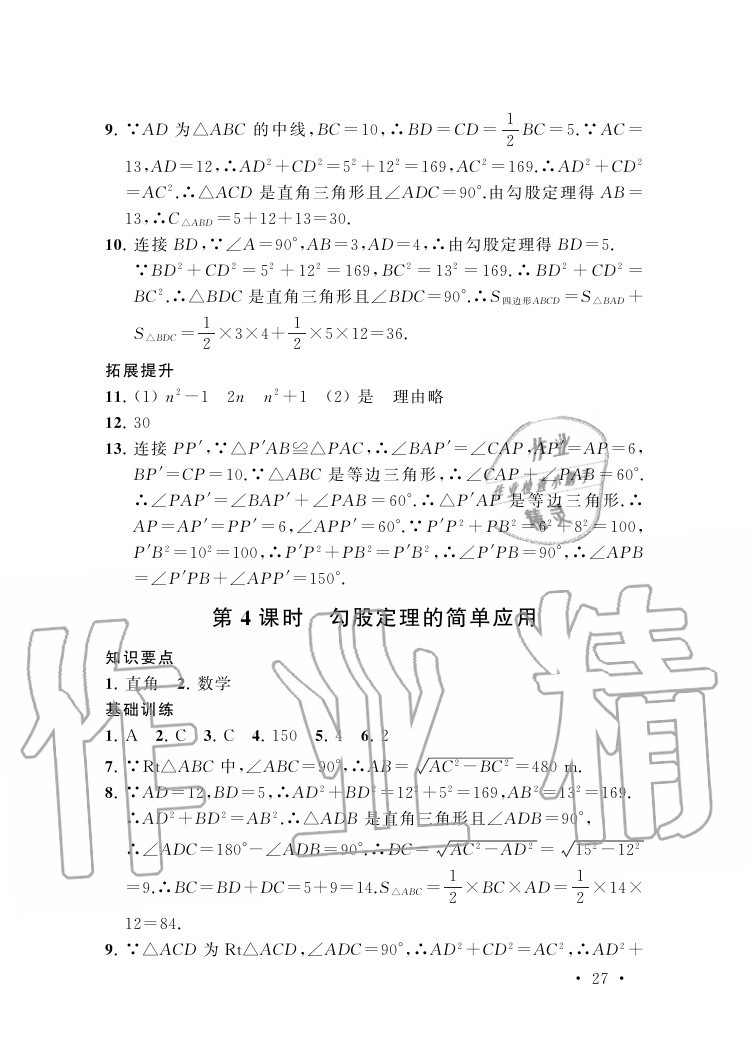 9. ∵AD 为△ABC 的中线,BC=10,∴BD=CD=1/2BC=5.∵AC=
13,AD=12,∴AD²+CD²=5²+12²=169,AC²=169.∴AD²+CD²
=AC².∴△ACD 是直角三角形且∠ADC=90°.由勾股定理得 AB=
13,∴C△ABD=5+12+13=30.
10. 连接 BD,∵∠A=90°,AB=3,AD=4,∴由勾股定理得 BD=5.
∵BD²+CD²=5²+12²=169,BC²=13²=169.∴BD²+CD²=
BC².∴△BDC 是直角三角形且∠BDC=90°.∴S四边形ABCD=S△BAD+
S△BDC=1/2×3×4+1/2×5×12=36.
拓展提升
11. (1) n²-1 2n n²+1 (2) 是 理由略
12. 30
13. 连接 PP′,∵△P′AB≌△PAC,∴∠BAP′=∠CAP,AP′=AP=6,
BP′=CP=10.∵△ABC 是等边三角形,∴∠CAP+∠PAB=60°.
∴∠PAP′=∠BAP′+∠PAB=60°.∴△P′AP 是等边三角形.∴
AP=AP′=PP′=6,∠APP′=60°.∵P′P²+PB²=6²+8²=100,
P′B²=10²=100,∴P′P²+PB²=P′B²,∴∠P′PB=90°,∴∠APB
=∠P′PB+∠APP′=150°.
第 4 课时 勾股定理的简单应用
知识要点
1. 直角 2. 数学
基础训练
1. A 2. C 3. C 4. 150 5. 4 6. 2
7. ∵Rt△ABC 中,∠ABC=90°,∴AB=√(AC²-BC²)=480 m.
8. ∵AD=12,BD=5,∴AD²+BD²=12²+5²=169,AB²=13²=169.
∴AD²+BD²=AB².∴△ADB 是直角三角形且∠ADB=90°,
∴∠ADC=180°-∠ADB=90°.∴DC=√(AC²-AD²)=√(15²-12²)
=9.∴BC=BD+DC=5+9=14.S△ABC=1/2×BC×AD=1/2×14×
12=84.
9. ∵△ACD 为 Rt△ACD,∠ADC=90°,∴AD²+CD²=AC²,∴AD²+
• 27 •
作业精
作业
作业检查小助手
精灵